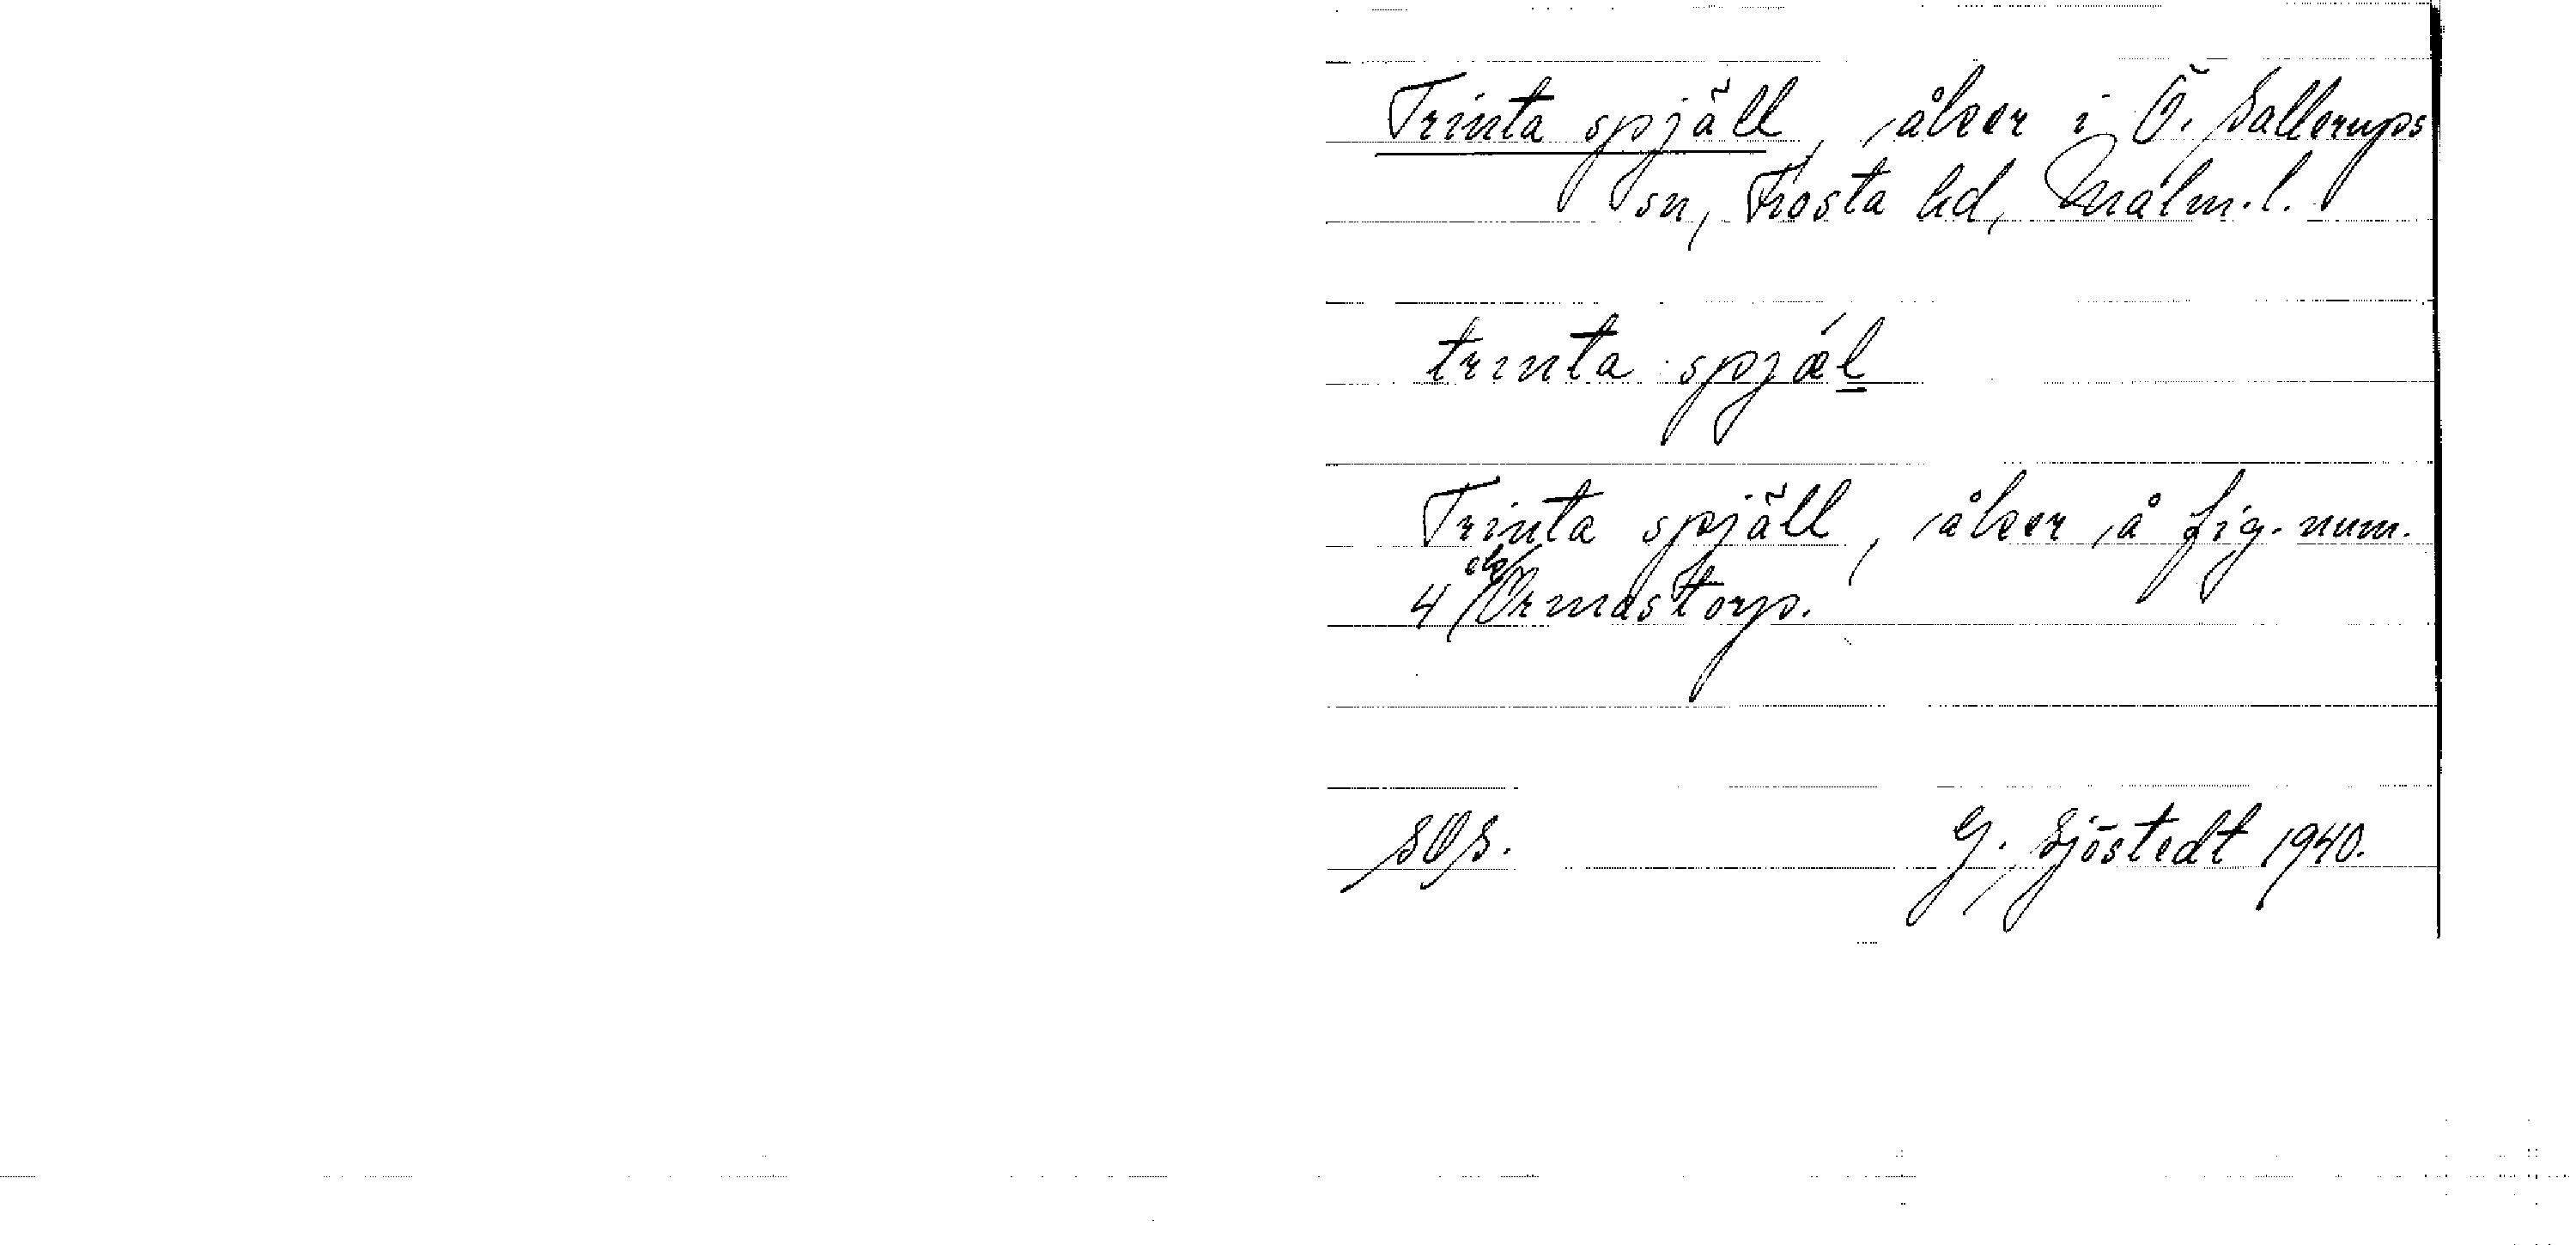 Trinta spjäll, åker i Ö. Sallerups
sn, Frosta hd, Malm. l.
trinta spjǽl
Trinta spjäll, åker å fig. num.
4 Ormastorp.
SOS. G. Sjöstedt 1940.